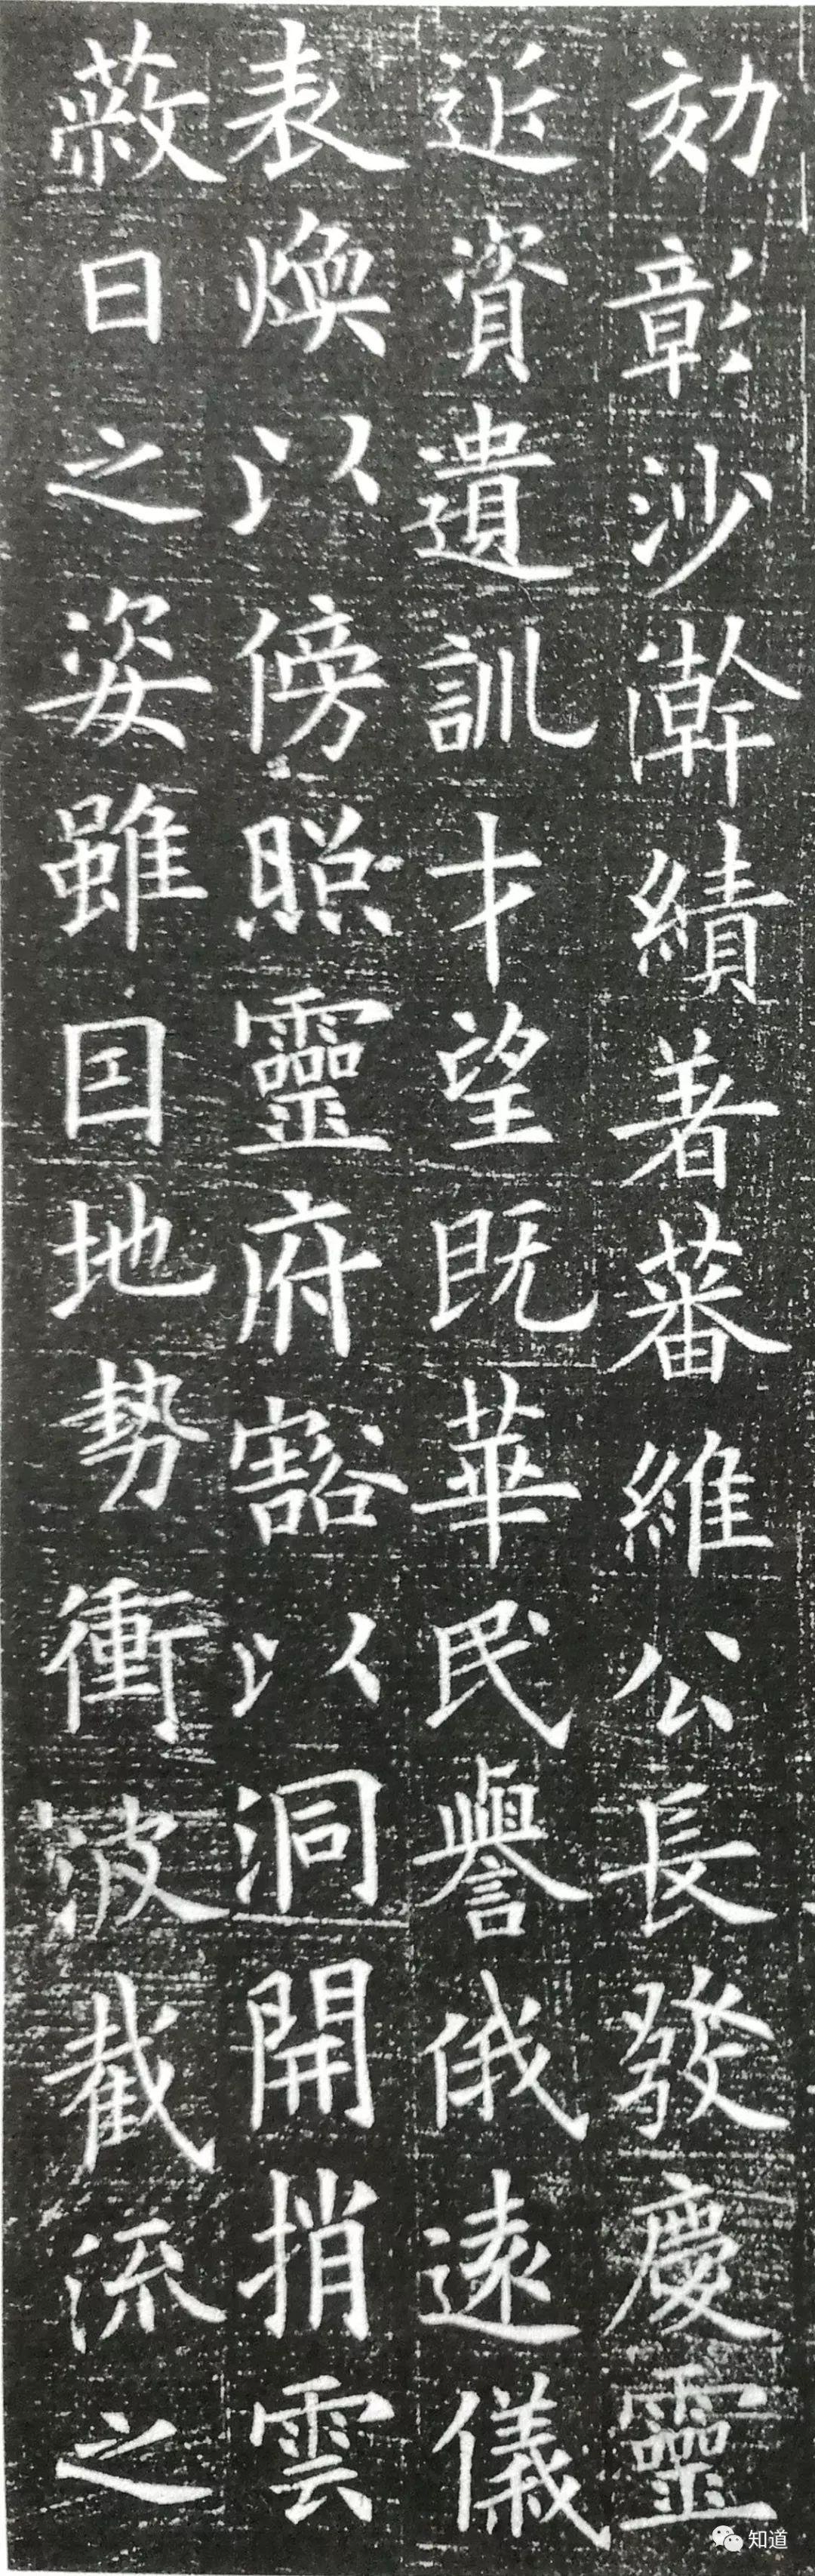 効彰沙漧績著蕃維公長發慶靈
近資遺訓才望既華民譽俄遠儀
表煥以傍照靈府豁以洞開捎雲
蔽日之姿雖因地勢衝波截流之
知道